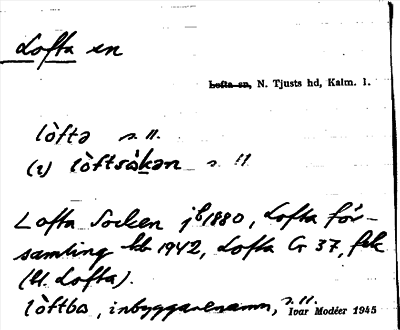 Lofta sn
Lofta sn, N. Tjusts hd, Kalm. l.
lòftə s. ll.
(i) lòftsòkən s. ll
Lofta Socken jb 1880, Lofta för-
samling kb 1942, Lofta G 37, fek
(bl. Lofta).
lòftbo, inbyggarenamn, s. ll.
Ivar Modéer 1945